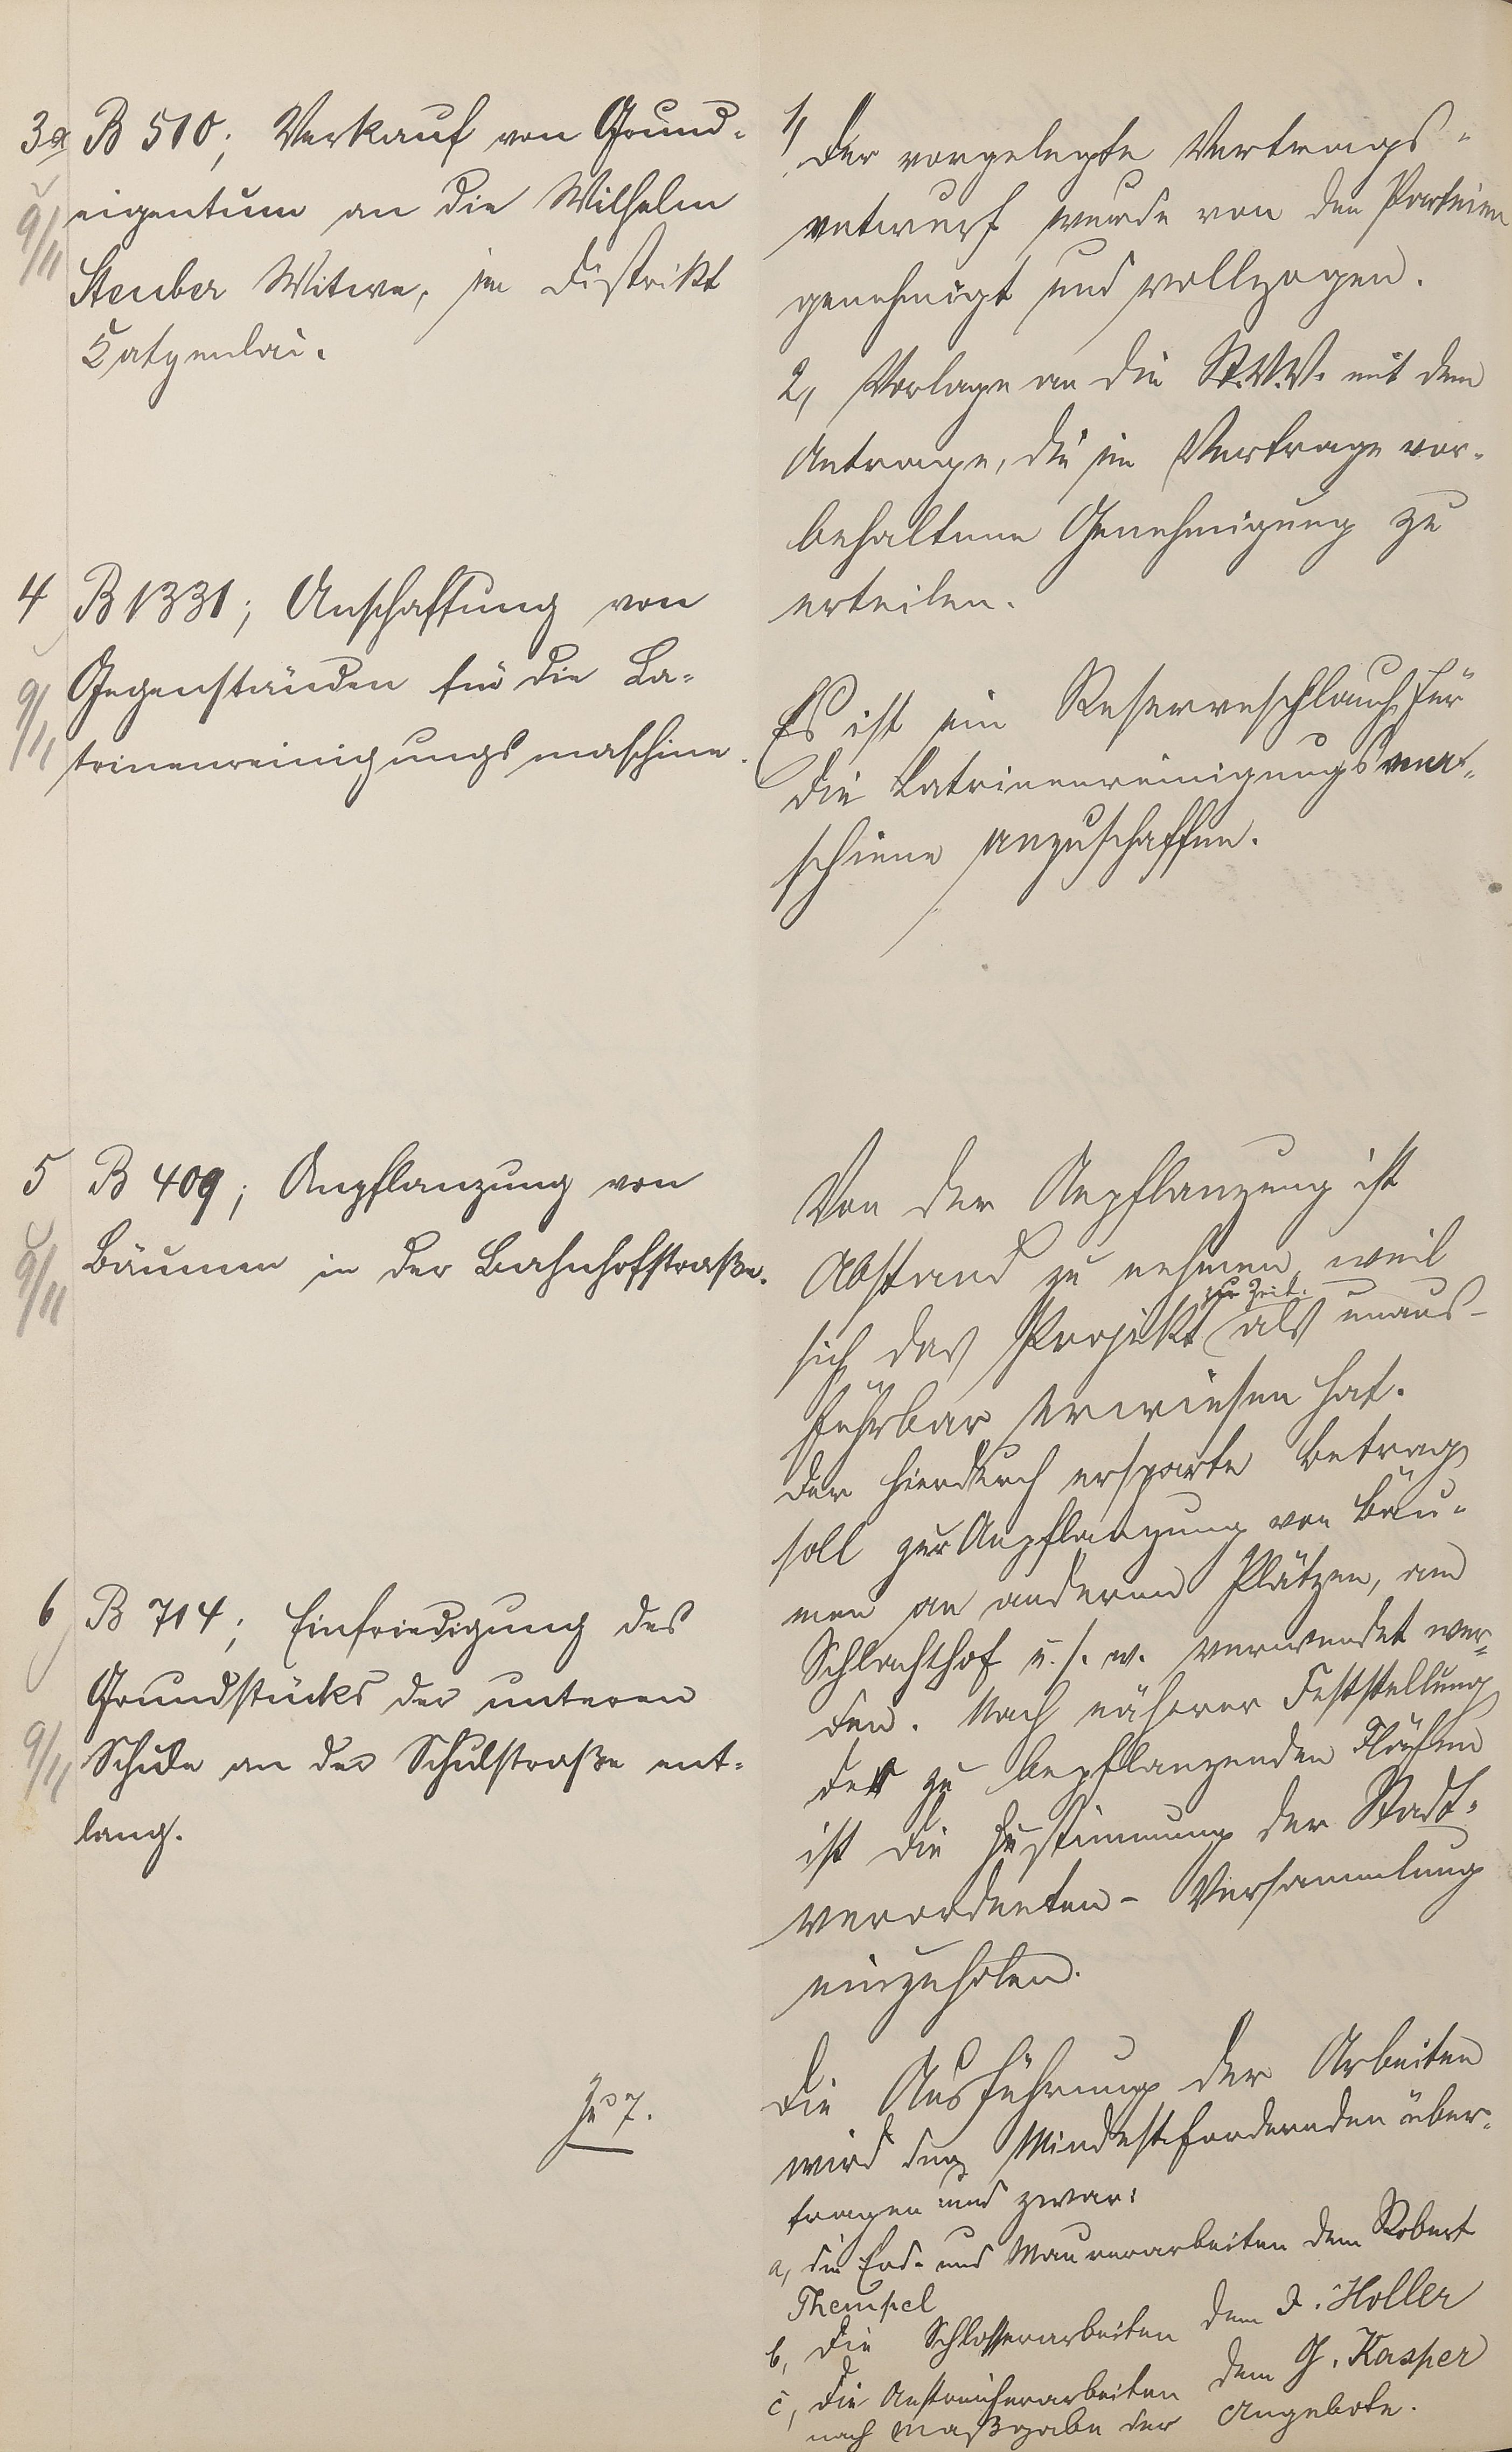 3a B 510; Verkauf von Grund-
9/11 eigentum an die Wilhelm
Steuber Witwe, im Distrikt
Katzenlai.
1, Der vorgelegte Vertrags-
entwurf wurde von den Parteien
genehmigt und vollzogen.
2, Vorlage an die St.V.V. mit dem
Antrage, die im Vertrage vor-
behaltene Genehmigung zu
erteilen.
4 B 1331; Anschaffung von
9/11 Gegenständen für die La-
trinenreinigungsmaschine.
Es ist ein Reserveschlauch für
die Latrinenreinigungsma-
schiene anzuschaffen.
5 B 409; Anpflanzung von
9/11 Bäumen in der Bahnhofstraße.
Von der Anpflanzung ist
Abstand zu nehmen, weil
zur Zeit
sich das Projekt als unaus-
führbar erwiesen hat.
Der hierdurch ersparte Betrag
soll zur Anpflanzung von Bäu-
men an anderen Plätzen, am
Schlachthof u. s. w. verwendet wer-
den. Nach näherer Feststellung
der zu bepflanzenden Flächen
ist die Zustimmung der Stadt-
verordneten-Versammlung
einzuholen.
6 B 714; Einfriedigung des
Grundstücks der unteren
9/11 Schule an der Schulstraße ent-
lang.
Die Ausführung der Arbeiten
wird den Mindestfordernden über-
tragen und zwar:
a, die Erd- und Maurerarbeiten dem Robert
Theusel
b, die Schlosserarbeiten dem J. Holler
c, die Anstreicherarbeiten dem G. Kasper
nach Maßgabe der Angebote.
Zu 7.